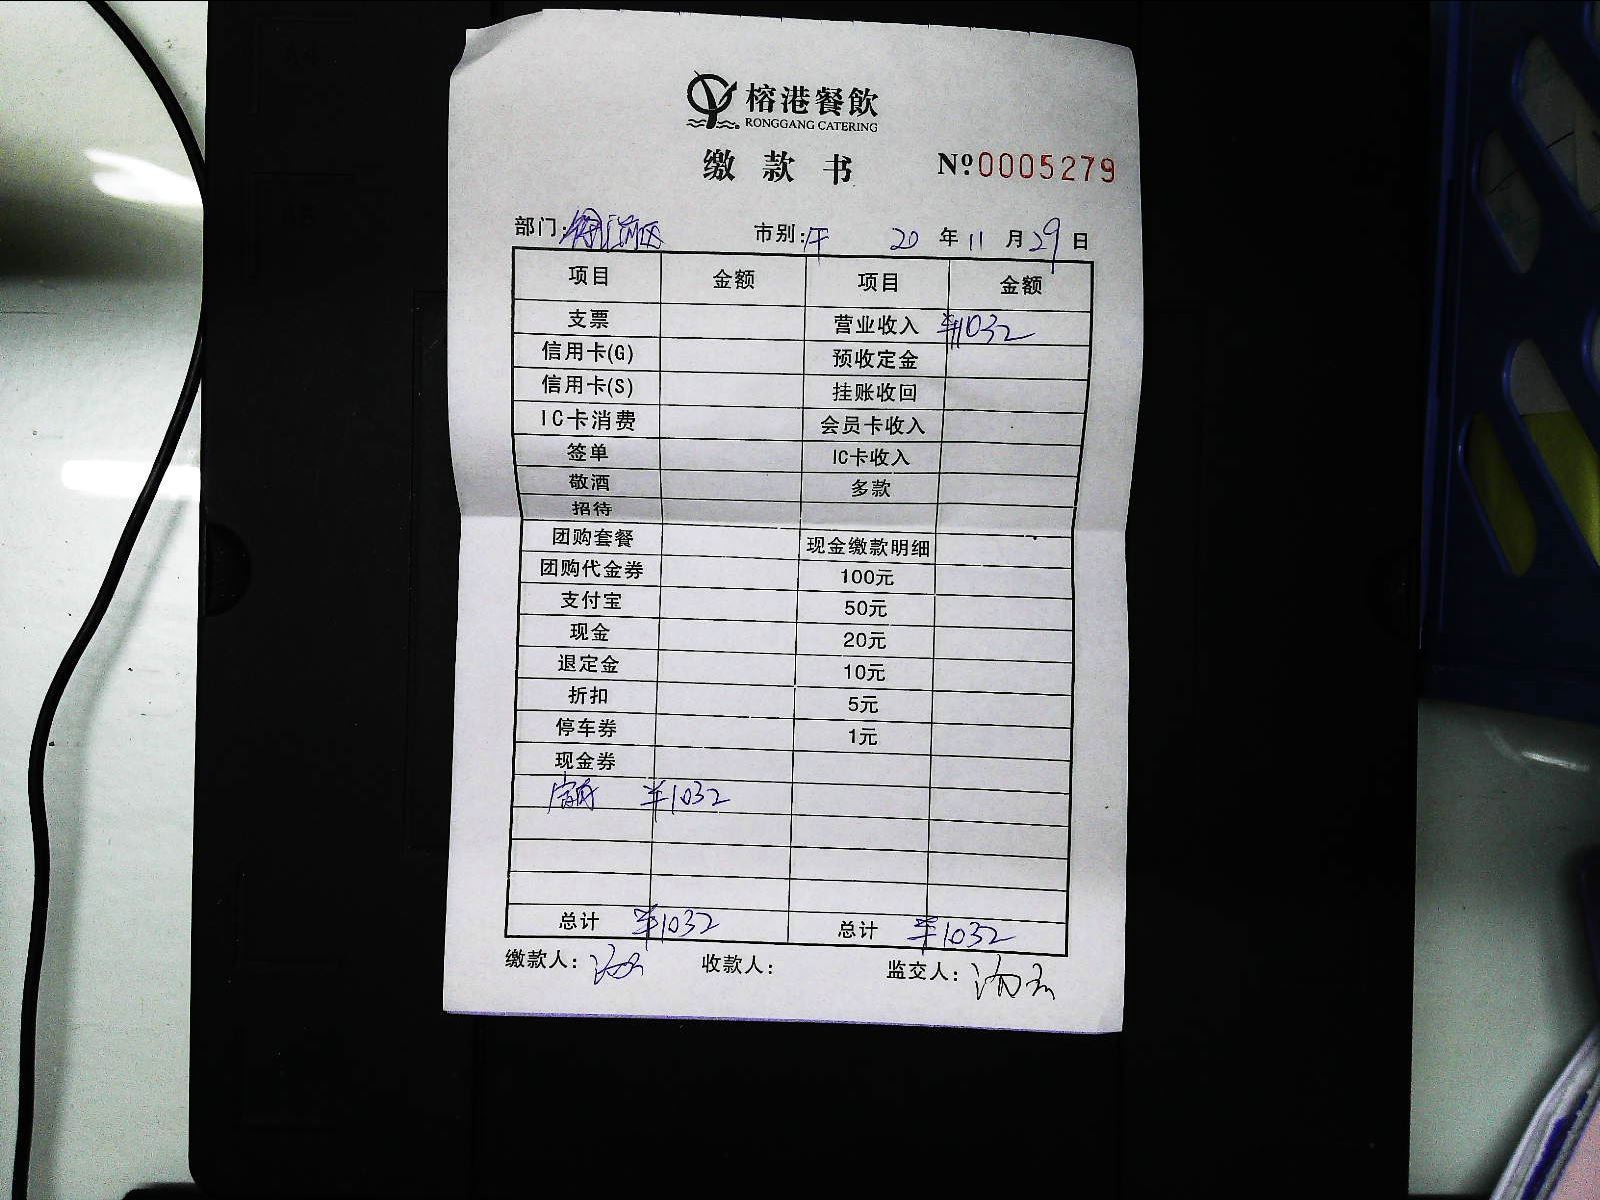 榕港餐飲
RONGGANG CATERING
缴款书 №0005279
部门: 市别:午 20年11月29日
项目 金额 项目 金额
支票 营业收入 ¥1032
信用卡(G) 预收定金
信用卡(S) 挂账收回
IC卡消费 会员卡收入
签单 IC卡收入
敬酒 多款
招待
团购套餐 现金缴款明细
团购代金券 100元
支付宝 50元
现金 20元
退定金 10元
折扣 5元
停车券 1元
现金券
¥1032
总计 ¥1032 总计 ¥1032
缴款人: 收款人: 监交人: